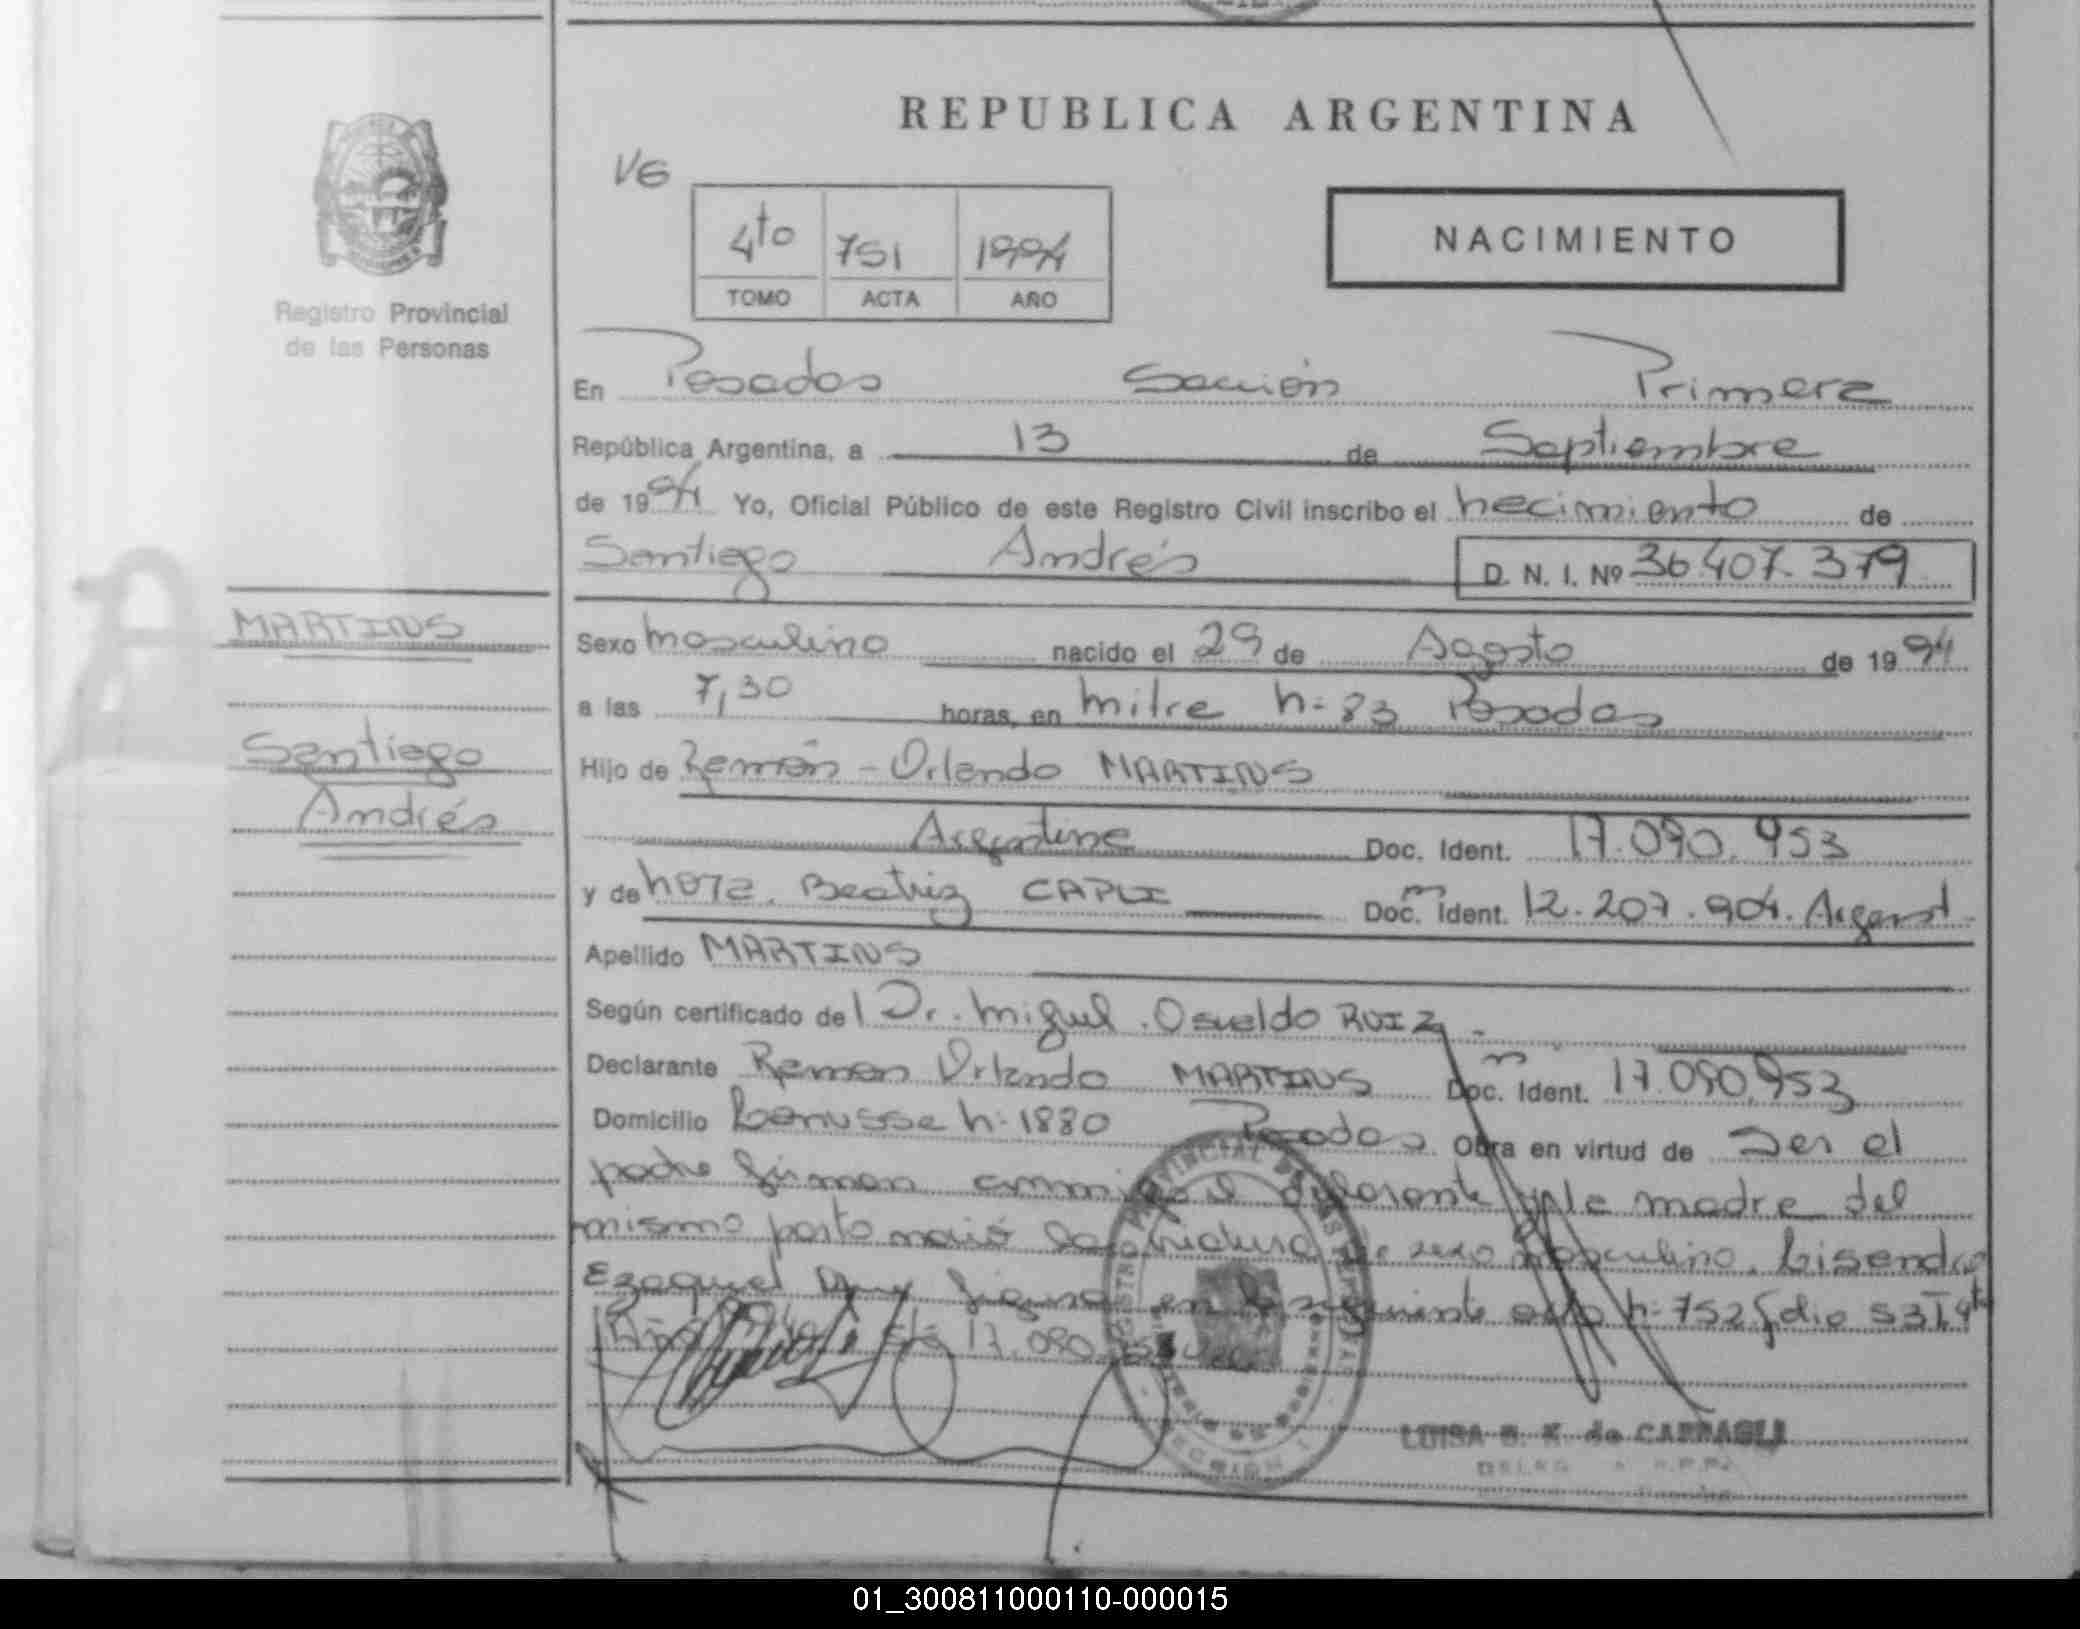 REPUBLICA ARGENTINA
VG
4to 751 1994
TOMO ACTA AÑO
NACIMIENTO
Registro Provincial
de las Personas
En Posadas Sección Primera
República Argentina, a 13 de Septiembre
de 1994 Yo, Oficial Público de este Registro Civil inscribo el nacimiento de
Santiago Andrés D. N. I. Nº 36.407.379
MARTINS
Santiago
Andrés
Sexo masculino nacido el 29 de Agosto de 1994
a las 7,30 horas, en Mitre n: 83 Posadas
Hijo de Ramón - Orlando MARTINS
Argentina Doc. Ident. 17.090.953
y de nora. Beatriz CAPLI Doc. Ident. 12.207.904. Argent
Apellido MARTINS
Según certificado del Dr. Miguel Osvaldo RUIZ
Declarante Ramon Orlando MARTINS Doc. Ident. 17.090.953
Domicilio Lanusse n: 1880 Posadas Obra en virtud de ser el
padre firman conmigo el y la madre del
mismo parto nació de sexo masculino. Lisandro
Ezequiel en la siguiente acta n: 752
17.090.
LUISA de
01_300811000110-000015